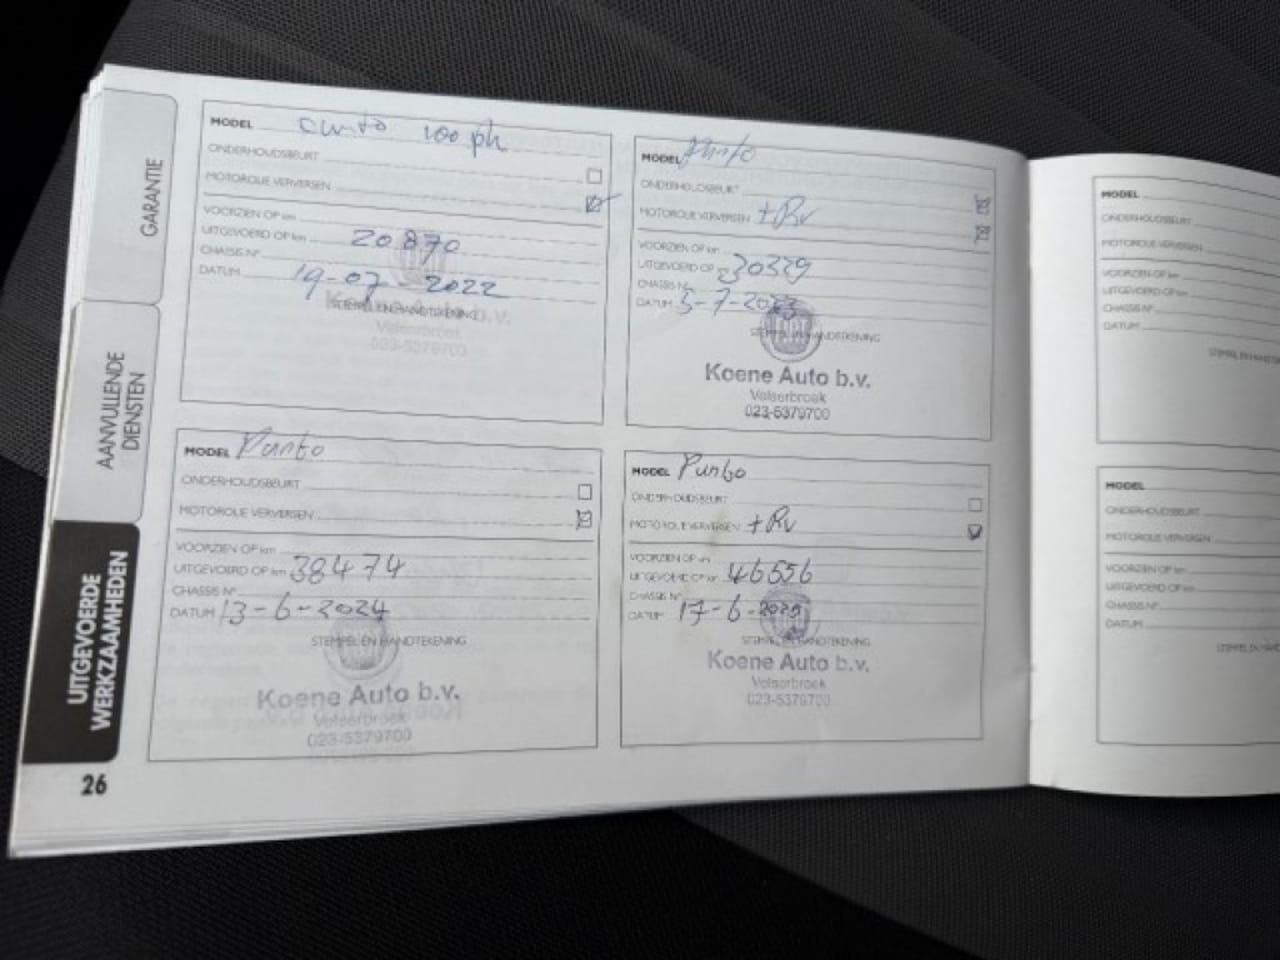 GARANTIE
AANVULLENDE
DIENSTEN
UITGEVOERDE
WERKZAAMHEDEN
26
MODEL punto 100 ph
ONDERHOUDSBEURT
MOTOROLIE VERVERSEN
VOORZIEN OP km
UITGEVOERD OP km 20870
CHASSIS N°
DATUM 19-07-2022
STEMPEL EN HANDTEKENING
Koene Auto b.v.
Velserbroek
023-5379700
MODEL Punto
ONDERHOUDSBEURT
MOTOROLIE VERVERSEN + Rv
VOORZIEN OP km
UITGEVOERD OP 30329
CHASSIS N°
DATUM 5-7-2023
STEMPEL EN HANDTEKENING
FIAT
Koene Auto b.v.
Velserbroek
023-5379700
MODEL Punto
ONDERHOUDSBEURT
MOTOROLIE VERVERSEN
VOORZIEN OP km
UITGEVOERD OP km 38474
CHASSIS N°
DATUM 13-6-2024
STEMPEL EN HANDTEKENING
Koene Auto b.v.
Velserbroek
023-5379700
MODEL Punto
ONDERHOUDSBEURT
MOTOROLIE VERVERSEN + Rv
VOORZIEN OP km
UITGEVOERD OP km 46556
CHASSIS N°
DATUM 17-6-2025
STEMPEL EN HANDTEKENING
Koene Auto b.v.
Velserbroek
023-5379700
MODEL
ONDERHOUDSBEURT
MOTOROLIE VERVERSEN
VOORZIEN OP km
UITGEVOERD OP km
CHASSIS N°
DATUM
STEMPEL EN
MODEL
ONDERHOUDSBEURT
MOTOROLIE VERVERSEN
VOORZIEN OP km
UITGEVOERD OP km
CHASSIS N°
DATUM
STEMPEL EN